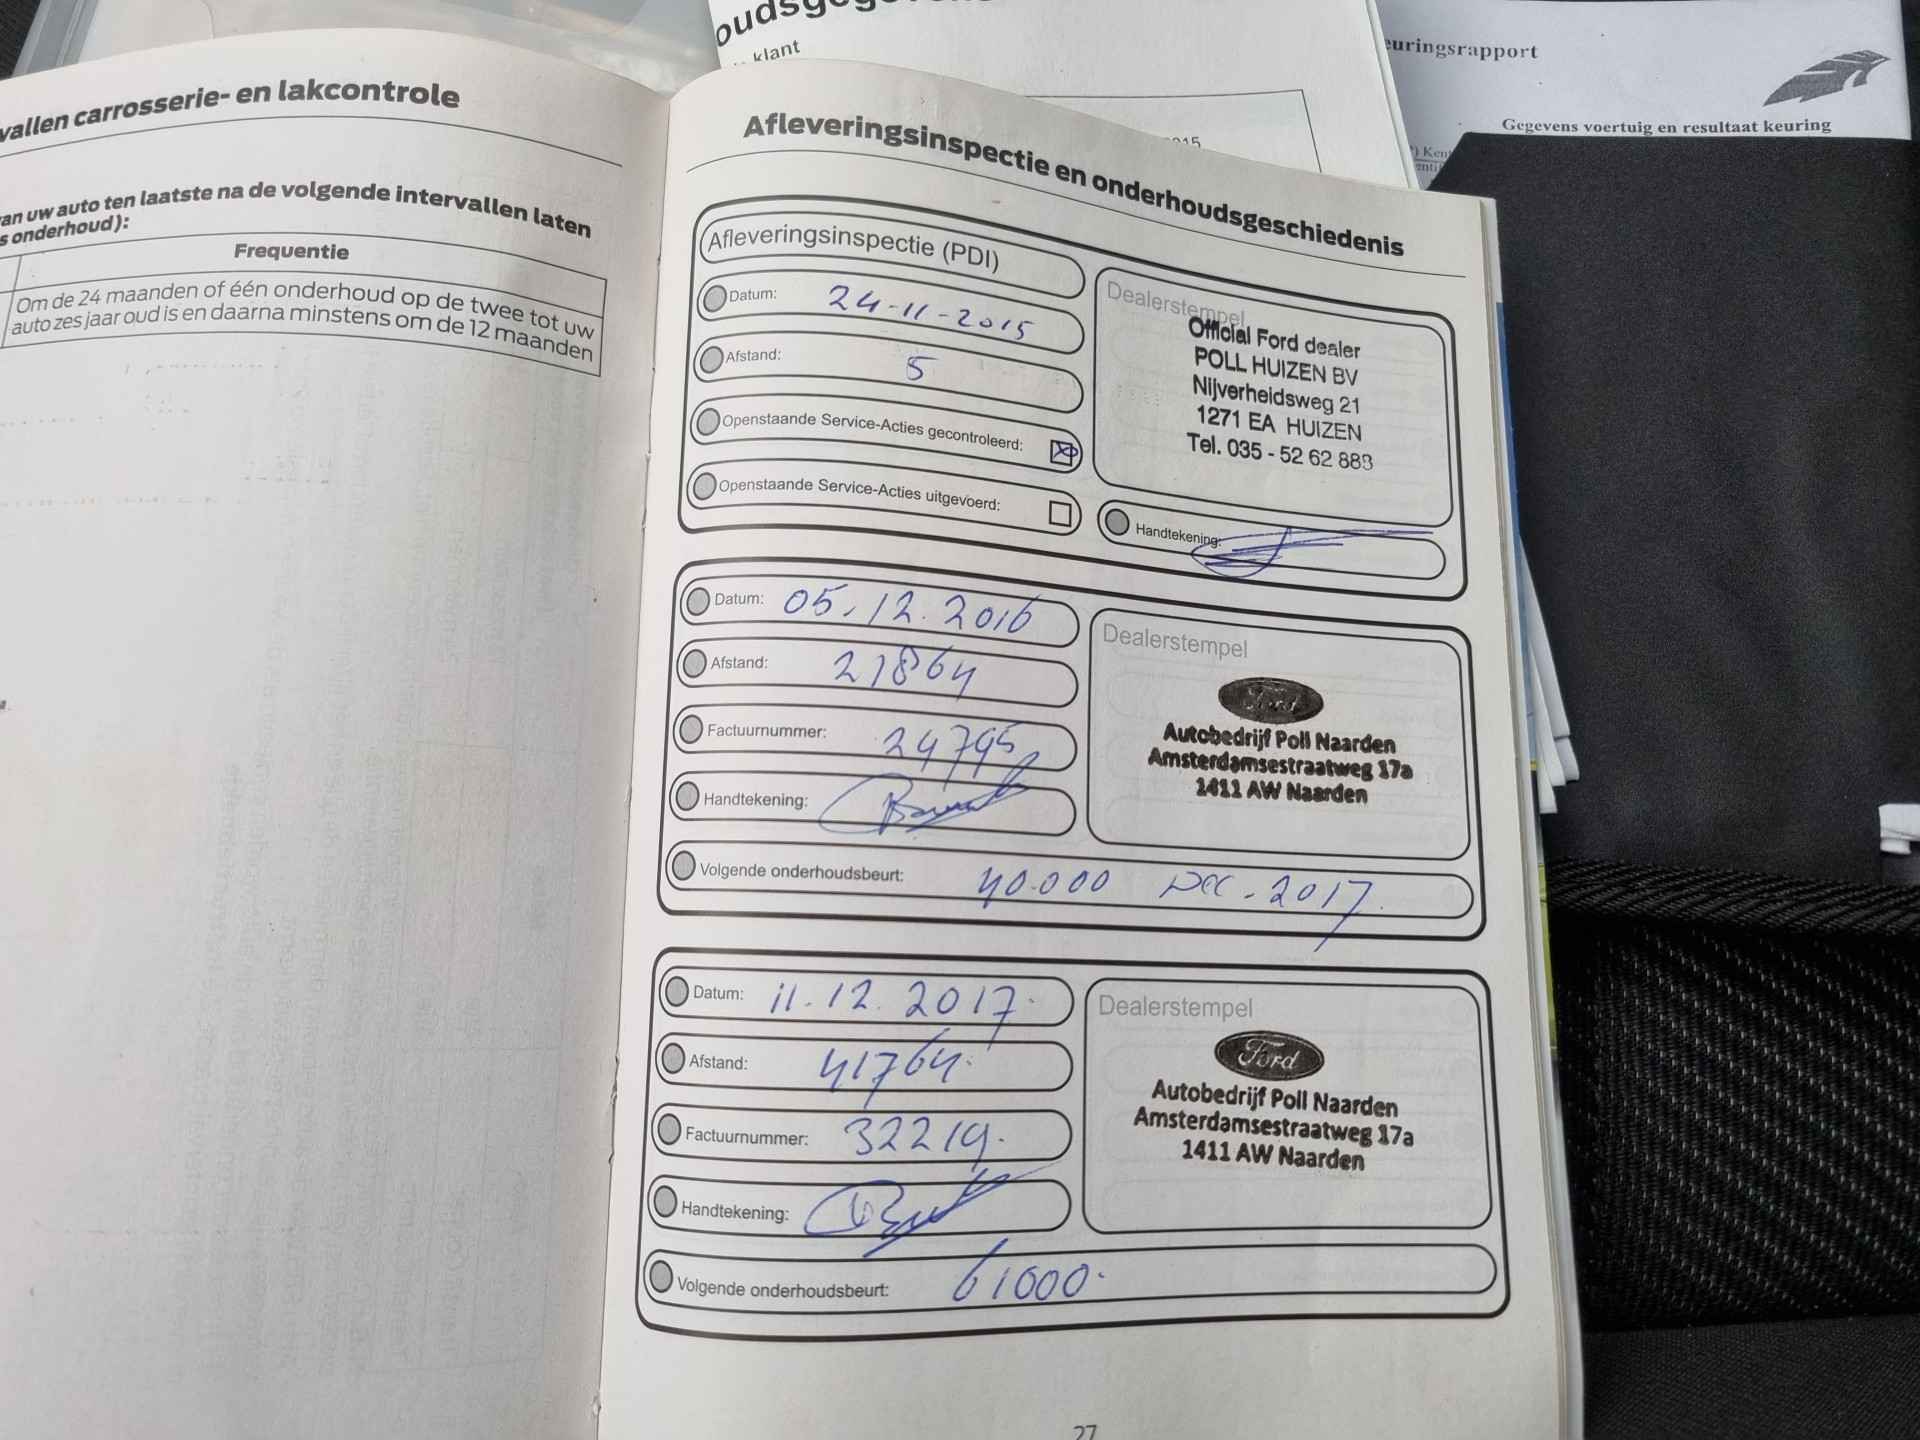 vallen carrosserie- en lakcontrole
van uw auto ten laatste na de volgende intervallen laten
s onderhoud):
Frequentie
Om de 24 maanden of één onderhoud op de twee tot uw
auto zes jaar oud is en daarna minstens om de 12 maanden
klant
euringsrapport
Gegevens voertuig en resultaat keuring
Afleveringsinspectie en onderhoudsgeschiedenis
Afleveringsinspectie (PDI)
Datum: 24-11-2015
Afstand: 5
Openstaande Service-Acties gecontroleerd:
Openstaande Service-Acties uitgevoerd:
Dealerstempel
Official Ford dealer
POLL HUIZEN BV
Nijverheidsweg 21
1271 EA HUIZEN
Tel. 035 - 52 62 883
Handtekening:
Datum: 05.12.2016
Afstand: 21864
Factuurnummer: 24795
Handtekening:
Volgende onderhoudsbeurt: 40.000 Dec-2017.
Dealerstempel
Ford
Autobedrijf Poll Naarden
Amsterdamsestraatweg 17a
1411 AW Naarden
Datum: 11.12.2017.
Afstand: 41764.
Factuurnummer: 32219.
Handtekening:
Volgende onderhoudsbeurt: 61000.
Dealerstempel
Ford
Autobedrijf Poll Naarden
Amsterdamsestraatweg 17a
1411 AW Naarden
27